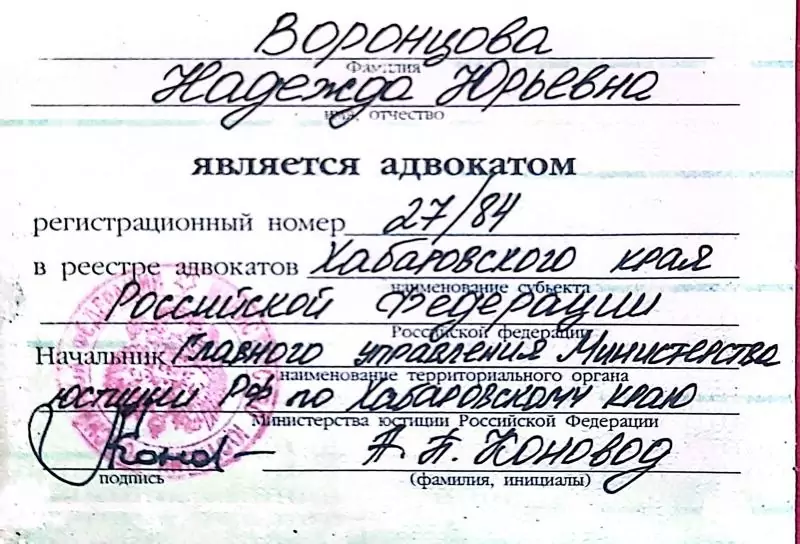 Воронцова
Фамилия
Надежда Юрьевна
имя, отчество
является адвокатом
регистрационный номер 27/84
в реестре адвокатов Хабаровского края
наименование субъекта
Российской Федерации
Российской федерации
Начальник Главного управления Министерства
наименование территориального органа
юстиции РФ по Хабаровскому краю
Министерства юстиции Российской Федерации
А.П. Коновод
подпись (фамилия, инициалы)